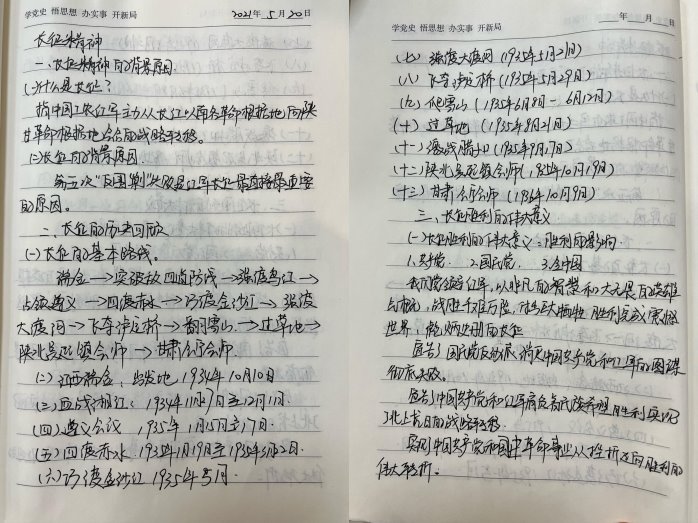 学党史 悟思想 办实事 开新局
2021年5月20日
长征精神
一、长征精神的背景原因
(一)什么是长征?
指中国工农红军主力从长江以南各革命根据地向陕
甘革命根据地会合的战略转移。
(二)长征的背景原因
第五次"反围剿"失败是红军长征最直接最重要
的原因。
二、长征的历史回顾
(一)长征的基本路线。
瑞金→突破敌四道防线→强渡乌江→
占领遵义→四渡赤水→巧渡金沙江→强渡
大渡河→飞夺泸定桥→翻雪山→过草地→
陕北吴起镇会师→甘肃会宁会师.
(二)江西瑞金,出发地 1934年10月10日
(三)血战湘江: 1934年11月 日至12月1日.
(四)遵义会议 1935年1月15日至17日.
(五)四渡赤水 1935年1月19日至1935年3月2日.
(六)巧渡金沙江 1935年5月.
学党史 悟思想 办实事 开新局
年 月 日
(七)强渡大渡河(1935年5月21日)
(八)飞夺泸定桥(1935年5月29日)
(九)爬雪山(1935年6月8日-6月12日)
(十)过草地(1935年8月21日)
(十一)激战腊子口(1935年9月17日)
(十二)陕北吴起镇会师(1935年10月19日)
(十三)甘肃会宁会师(1936年10月9日)
三、长征胜利的伟大意义
(一)长征胜利的伟大意义:胜利的影响
1.对党. 2.国民党. 3.全中国
我们党领导红军,以非凡的智慧和大无畏的英雄
气概,战胜千难万险,付出巨大牺牲 胜利完成震撼
世界、彪炳史册的长征
宣告了国民党反动派消灭中国共产党和红军的图谋
彻底失败.
宣告了中国共产党和红军肩负着民族希望胜利实现
了北上抗日的战略转移.
实现了中国共产党和中国革命事业从挫折走向胜利的
伟大转折。